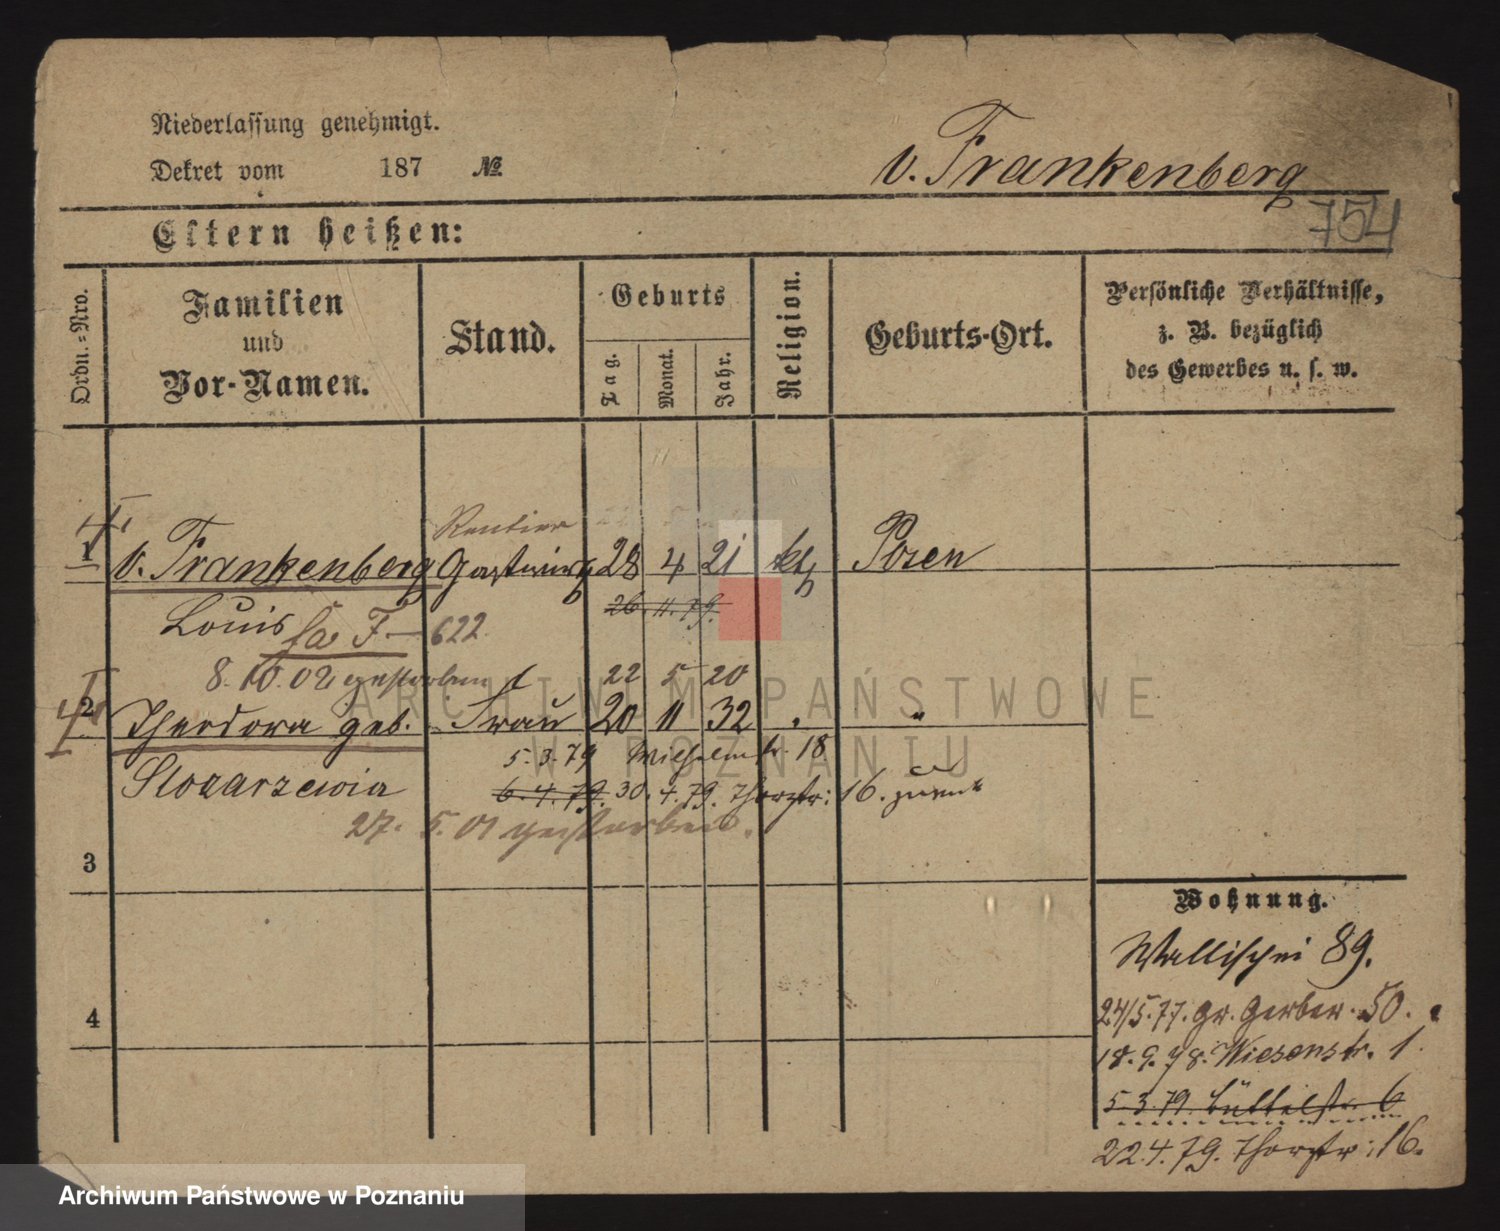 Niederlassung genehmigt.
Dekret vom 187 №
v. Frankenberg
754
Eltern heißen:
Ordn.-Nro.
Familien
und
Vor-Namen.
Stand.
Geburts
Tag.
Monat.
Jahr.
Religion.
Geburts-Ort.
Persönliche Verhältnisse,
z. B. bezüglich
des Gewerbes u. s. w.
Rentier
1 v. Frankenberg Gastwirth 28 4 21 kth Posen
26. 11. 79.
Louis F. – 622
8. 10. 02 gestorben 22 5 20
2 Theodora geb. Frau 20 11 32 "
5. 3. 79 Wilhelmstr. 18
6. 4. 79. 30. 4. 79. Thorstr: 16. zurück
27. 5. 01 gestorben.
3
4
Wohnung.
Wallischei 89.
24/5. 77. Gr. Gerber. 50.
18. 9. 78. Wiesenstr. 1.
5. 3. 79. Büttelstr. 6
22. 4. 79. Thorstr: 16.
ARCHIWUM PAŃSTWOWE
W POZNANIU
Archiwum Państwowe w Poznaniu